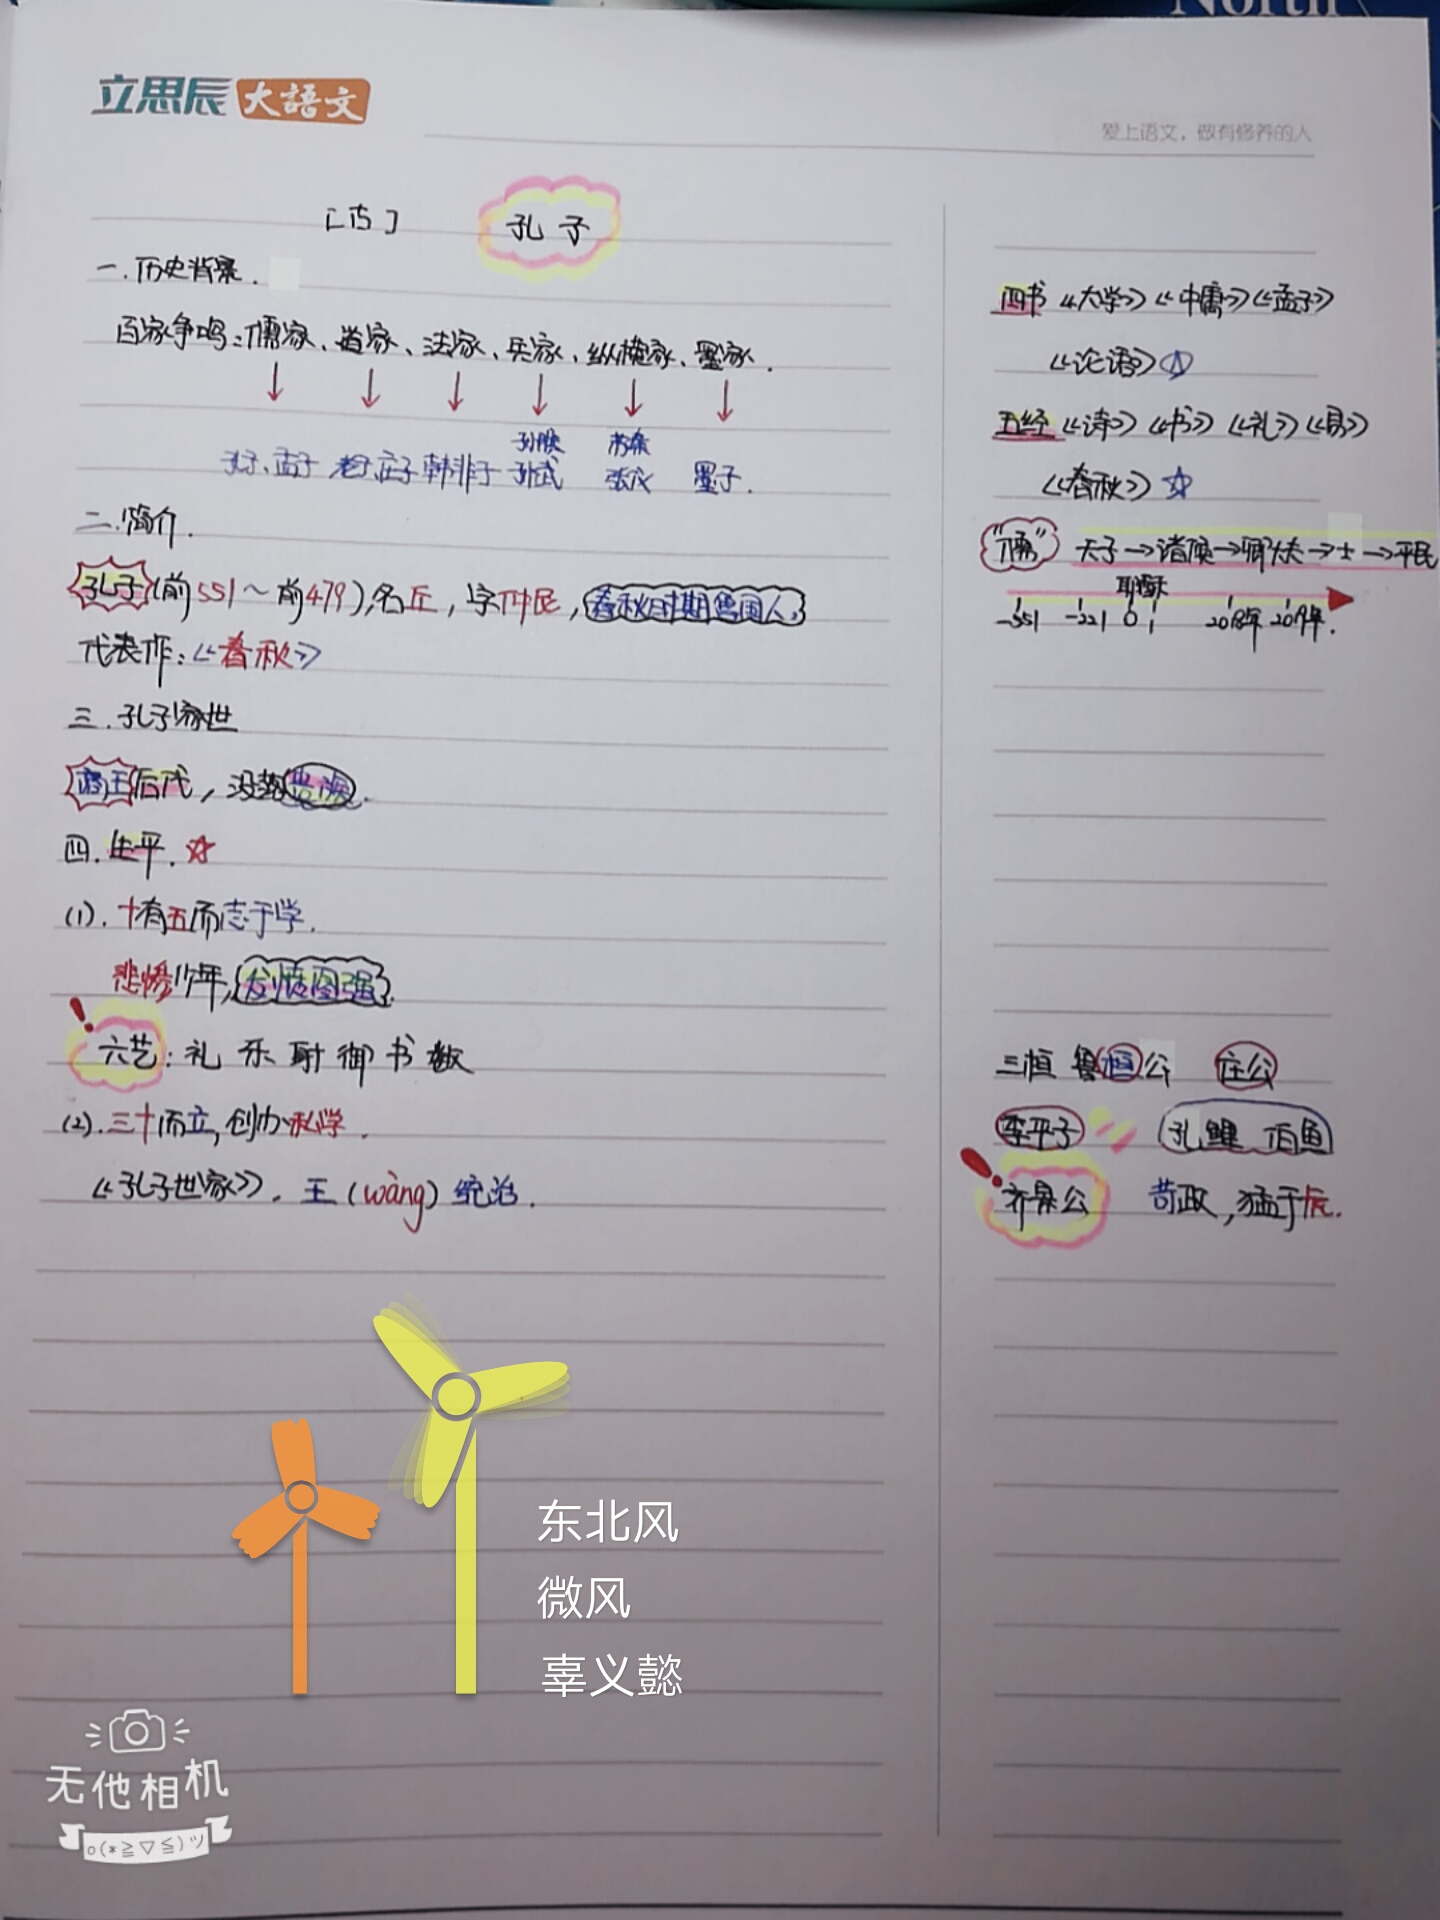 North
立思辰大語文
爱上语文，做有修养的人
孔子
一.历史背景.
百家争鸣:儒家、道家、法家、兵家、纵横家、墨家.
孙膑 苏秦
孔子、孟子 老子、庄子 韩非子 孙武 张仪 墨子.
二.简介.
孔子(前551～前479),名丘,字仲尼,春秋时期鲁国人,
代表作:《春秋》
三.孔子家世
商王后代,没落贵族.
四.生平.☆
(1).十有五而志于学.
悲惨少年,发愤图强.
六艺:礼 乐 射 御 书 数
(2).三十而立,创办私学.
《孔子世家》. 王(wàng)统治.
四书《大学》《中庸》《孟子》
《论语》☆
五经《诗》《书》《礼》《易》
《春秋》☆
"儒" 天子→诸侯→卿大夫→士→平民
耶稣
-551 -221 0 1 2018年 2019年.
三桓 鲁桓公 庄公
季平子 孔鲤 伯鱼
齐景公 苛政,猛于虎.
东北风
微风
辜义懿
无他相机
o(*≧▽≦)ツ